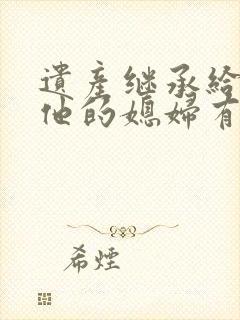 遺產继承給
他的媳婦有
希煙